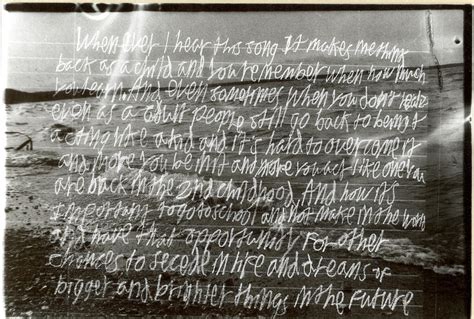 When ever I hear this song It makes me think
back as a child and you remember when how much
you teach. And even sometimes when you don't realize
even as a adult people still go back to being it
acting like a kid and it's hard to overcome it
and make you be in it and make you act like one. You
are back in the 2nd childhood. And how its
important to go to school and not make in the
and have that opportunity for other
chances to secede in life and dreams of
bigger and brighter things in the future